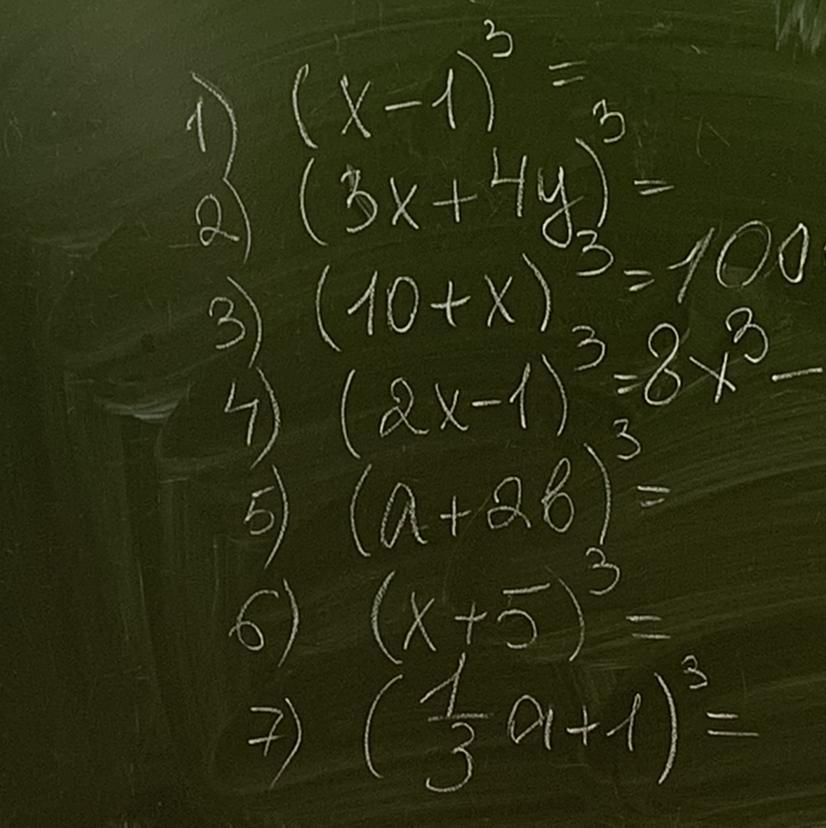 1) (x-1)³ =
2) (3x+4y)³ =
3) (10+x)³ = 100
4) (2x-1)³ = 8x³ -
5) (a+2b)³ =
6) (x+5)³ =
7) (1/3 a+1)³ =